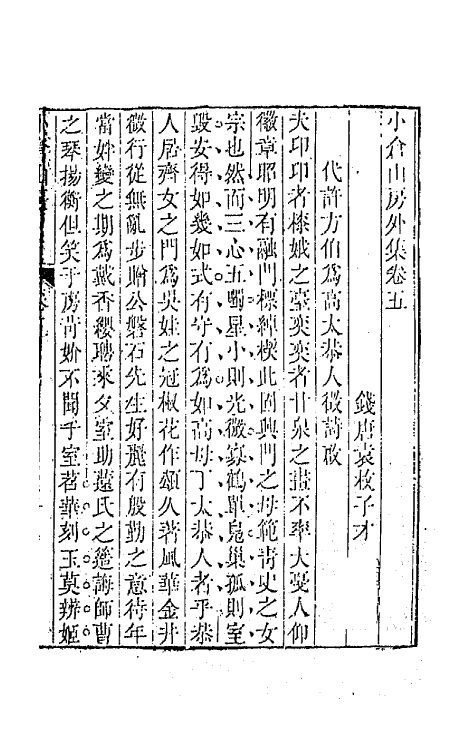 小倉山房外集卷五
錢唐袁枚子才
代許方伯爲高太恭人徵詩啟
夫印印者嫽娥之臺奕奕者甘泉之畫不率大戞人仰
徽章昭明有融門標綽楔此固興門之母範靑史之女
宗也然而三心五噣星小則光微寡鶴單鳧巢孤則室
毀安得如幾如式有守有爲如高母丁太恭人者乎恭
人居齊女之門爲吳娃之冠椒花作頌久著風華金井
微行從無亂步贈公磐石先生好麗有殷勤之意待年
當姅變之期爲戴香纓聘來夕室助薳氏之簉誨師曹
之琴揚衡但笑于房靑妎不聞于室苕華刻玉莫辨姬